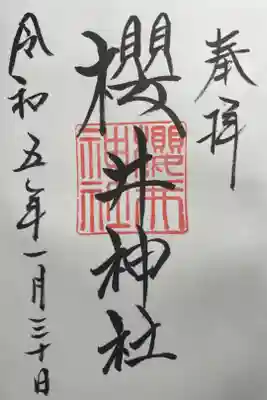 奉拝
櫻井神社
櫻井神社
令和五年一月三十日